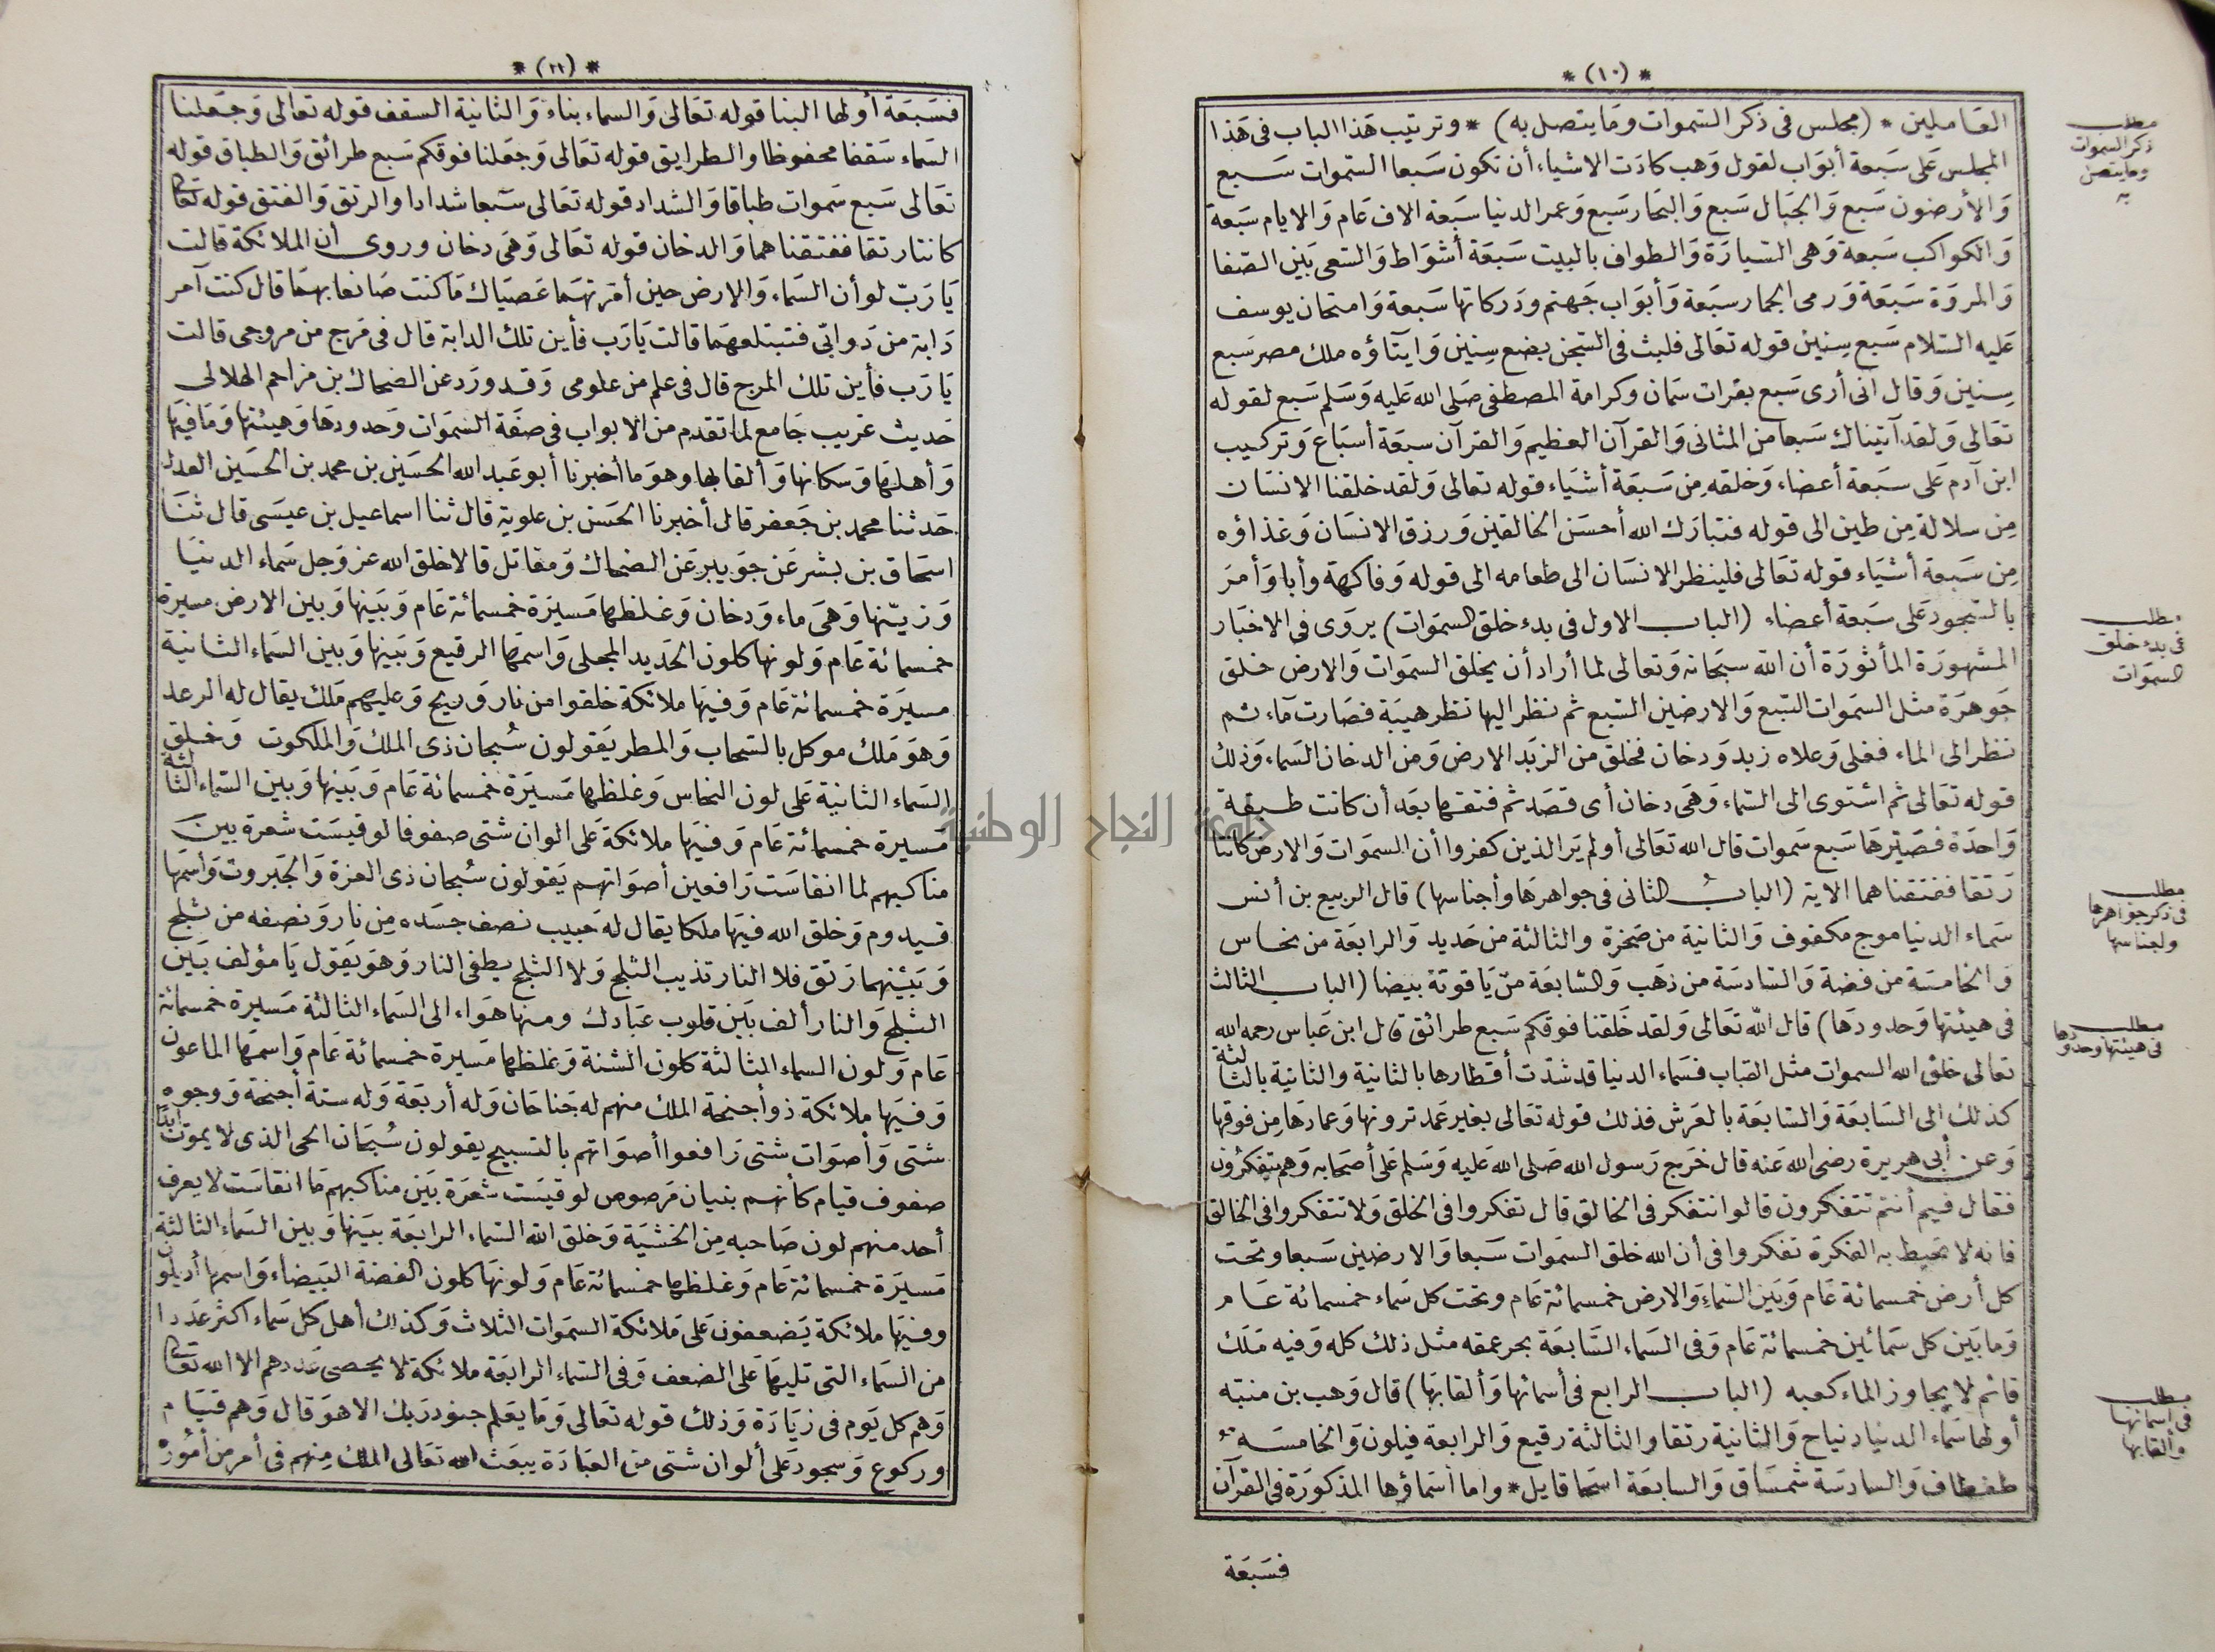 * (١٠) *
العاملين * (مجلس فى ذكر السموات وما يتصل به) * وترتيب هذا الباب فى هذا
المجلس على سبعة أبواب لقول وهب كادت الاشياء أن تكون سبعا السموات سبع
والأرضون سبع والجبال سبع والبحار سبع وعمر الدنيا سبعة الاف عام والايام سبعة
والكواكب سبعة وهى السيارة والطواف بالبيت سبعة أشواط والسعى بين الصفا
والمروة سبعة ورمى الجمار سبعة وأبواب جهنم ودركاتها سبعة وامتحان يوسف
عليه السلام سبع سنين قوله تعالى فلبث فى السجن بضع سنين وايتاؤه ملك مصر سبع
سنين وقال انى أرى سبع بقرات سمان وكرامة المصطفى صلى الله عليه وسلم سبع لقوله
تعالى ولقد آتيناك سبعا من المثانى والقرآن العظيم والقرآن سبعة أسباع وتركيب
ابن آدم على سبعة أعضاء وخلقه من سبعة أشياء قوله تعالى ولقد خلقنا الانسان
من سلالة من طين الى قوله فتبارك الله أحسن الخالقين ورزق الانسان وغذاؤه
من سبعة أشياء قوله تعالى فلينظر الانسان الى طعامه الى قوله وفاكهة وأبا وأمر
بالسجود على سبعة أعضاء (الباب الاول فى بدء خلق السموات) يروى فى الاخبار
المشهورة المأثورة أن الله سبحانه وتعالى لما أراد أن يخلق السموات والارض خلق
جوهرة مثل السموات السبع والارضين السبع ثم نظر اليها نظر هيبة فصارت ماء ثم
نظر الى الماء فغلى وعلاه زبد ودخان فخلق من الزبد الارض ومن الدخان السماء وذلك
قوله تعالى ثم استوى الى السماء وهى دخان أى قصد ثم فتقها بعد أن كانت طبقة
واحدة فصيرها سبع سموات قال الله تعالى أولم ير الذين كفروا أن السموات والارض كانتا
رتقا ففتقناهما الاية (الباب الثانى فى جواهرها وأجناسها) قال الربيع بن أنس
سماء الدنيا موج مكفوف والثانية من صخرة والثالثة من حديد والرابعة من نحاس
والخامسة من فضة والسادسة من ذهب والسابعة من ياقوتة بيضا (الباب الثالث
فى هيئتها وحدودها) قال الله تعالى ولقد خلقنا فوقكم سبع طرائق قال ابن عباس رحمه الله
تعالى خلق الله السموات مثل القباب فسماء الدنيا قد شدت أقطارها بالثانية والثانية بالثالثة
كذلك الى السابعة والسابعة بالعرش فذلك قوله تعالى بغير عمد ترونها وعمادها من فوقها
وعن أبى هريرة رضى الله عنه قال خرج رسول الله صلى الله عليه وسلم على أصحابه وهم يتفكرون
فقال فيم أنتم تتفكرون قالوا نتفكر فى الخالق قال تفكروا فى الخلق ولا تتفكروا فى الخالق
فانه لا تحيط به الفكرة تفكروا فى أن الله خلق السموات سبعا والارضين سبعا وتحت
كل أرض خمسمائة عام وبين السماء والارض خمسمائة عام وتحت كل سماء خمسمائة عام
وما بين كل سمائين خمسمائة عام وفى السماء السابعة بحر عمقه مثل ذلك كله وفيه ملك
قائم لا يجاوز الماء كعبه (الباب الرابع فى أسمائها وألقابها) قال وهب بن منبه
أولها سماء الدنيا دنياح والثانية رتقا والثالثة رقيع والرابعة فيلون والخامسة
طفطاف والسادسة شمساق والسابعة اسحاقايل * واما أسماؤها المذكورة فى القرآن
فسبعة
مطلب
ذكر السموات
وما يتصل
به
مطلب
فى بدء خلق
السموات
مطلب
فى ذكر جواهرها
وأجناسها
مطلب
فى هيئتها وحدودها
مطلب
فى أسمائها
وألقابها
* (١١) *
فسبعة أولها البنا قوله تعالى والسماء بناء والثانية السقف قوله تعالى وجعلنا
السماء سقفا محفوظا والطرايق قوله تعالى وجعلنا فوقكم سبع طرائق والطباق قوله
تعالى سبع سموات طباقا والشداد قوله تعالى سبعا شدادا والرتق والفتق قوله تعالى
كانتا رتقا ففتقناهما والدخان قوله تعالى وهى دخان وروى أن الملائكة قالت
يا رب لو أن السماء والارض حين أمرتهما عصياك ما كنت صانعا بهما قال كنت آمر
دابة من دوابى فتبتلعهما قالت يا رب فأين تلك الدابة قال فى مرج من مروجى قالت
يا رب فأين تلك المرج قال فى علم من علومى وقد ورد عن الضحاك بن مزاحم الهلالى
حديث غريب جامع لما تقدم من الابواب فى صفة السموات وحدودها وهيئتها وما فيها
وأهلها وسكانها وألقابها وهو ما أخبرنا أبو عبد الله الحسين بن محمد بن الحسين العدل
حدثنا محمد بن جعفر قال أخبرنا الحسن بن علوية قال ثنا اسماعيل بن عيسى قال ثنا
اسحاق بن بشر عن جويبر عن الضحاك ومقاتل قالا خلق الله عز وجل سماء الدنيا
وزينها وهى ماء ودخان وغلظها مسيرة خمسمائة عام وبينها وبين الارض مسيرة
خمسمائة عام ولونها كلون الحديد المجلى واسمها الرقيع وبينها وبين السماء الثانية
مسيرة خمسمائة عام وفيها ملائكة خلقوا من نار وريح وعليهم ملك يقال له الرعد
وهو ملك موكل بالسحاب والمطر يقولون سبحان ذى الملك والملكوت وخلق
السماء الثانية على لون النحاس وغلظها مسيرة خمسمائة عام وبينها وبين السماء الثالثة
مسيرة خمسمائة عام وفيها ملائكة على الوان شتى صفوفا لو قيست شعرة بين
مناكبهم لما انقاست رافعين أصواتهم يقولون سبحان ذى العزة والجبروت وأسمها
قيدوم وخلق الله فيها ملكا يقال له حبيب نصف جسده من نار ونصفه من ثلج
وبينهما رتق فلا النار تذيب الثلج ولا الثلج يطفى النار وهو يقول يا مؤلف بين
الثلج والنار ألف بين قلوب عبادك ومنها هواء الى السماء الثالثة مسيرة خمسمائة
عام ولون السماء الثالثة كلون الشنة وغلظها مسيرة خمسمائة عام واسمها الماعون
وفيها ملائكة ذو أجنحة الملك منهم له جناحان وله أربعة وله ستة أجنحة ووجوه
شتى وأصوات شتى رافعوا أصواتهم بالتسبيح يقولون سبحان الحى الذى لا يموت أبدا
صفوف قيام كأنهم بنيان مرصوص لو قيست شعرة بين مناكبهم ما انقاست لا يعرف
أحد منهم لون صاحبه من الخشية وخلق الله السماء الرابعة بينها وبين السماء الثالثة
مسيرة خمسمائة عام وغلظها خمسمائة عام ولونها كلون الفضة البيضاء واسمها أديلون
وفيها ملائكة يضعفون على ملائكة السموات الثلاث وكذلك أهل كل سماء اكثر عددا
من السماء التى تليها على الضعف وفى السماء الرابعة ملائكة لا يحصى عددهم الا الله تعالى
وهم كل يوم فى زيادة وذلك قوله تعالى وما يعلم جنود ربك الا هو قال وهم قيام
وركوع وسجود على ألوان شتى من العبادة يبعث الله تعالى الملك منهم فى أمر من أموره
جامعة النجاح الوطنية